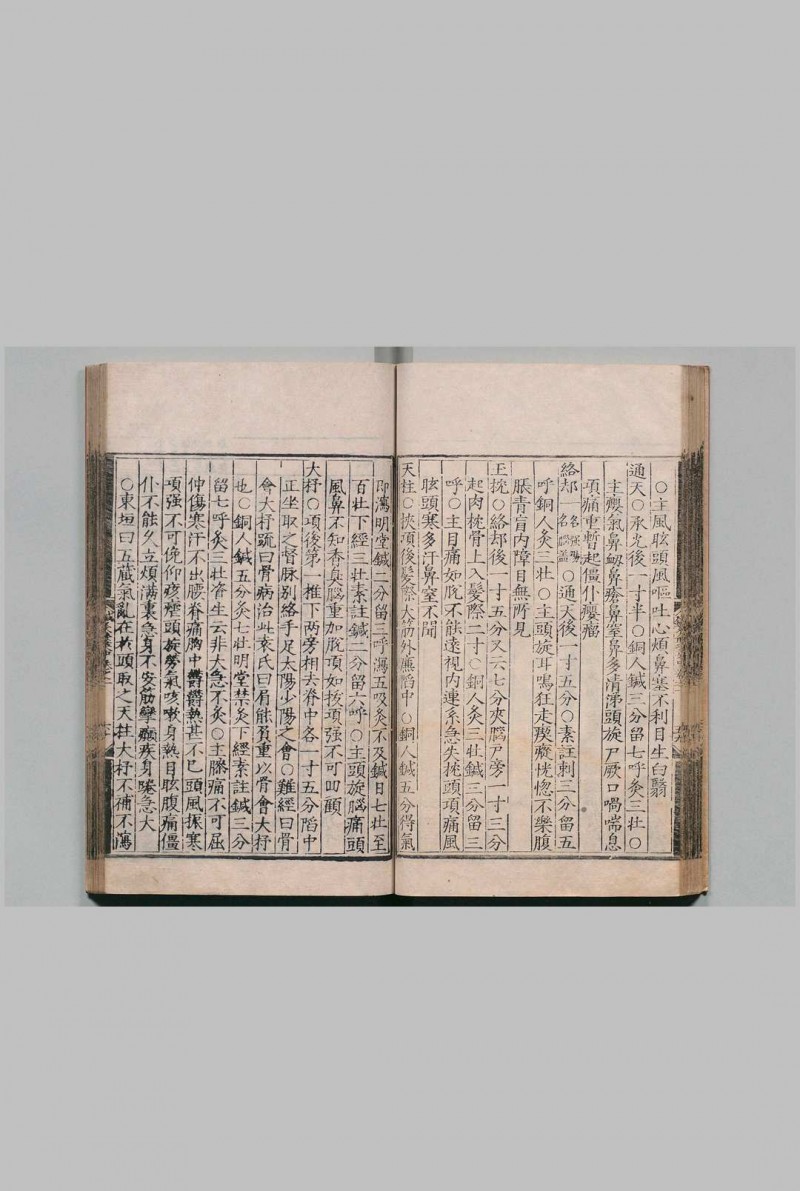 ○主風眩頭風嘔吐心煩鼻塞不利目生白翳
通天○承光後一寸半○銅人鍼三分留七呼灸三壯○
主癭氣鼻衄鼻瘡鼻窒鼻多清涕頭旋尸厥口喎喘息
項痛重暫起僵仆癭瘤
絡却一名強陽一名腦蓋○通天後一寸五分○素註刺三分留五
呼銅人灸三壯○主頭旋耳鳴狂走瘈瘲恍惚不樂腹
脹青盲内障目無所見
玉枕○絡却後一寸五分又云六七分夾腦戸旁一寸三分
起肉枕骨上入髮際二寸○銅人灸三壯鍼三分留三
呼○主目痛如脫不能遠視内連系急失枕頭項痛風
眩頭寒多汗鼻窒不聞
天柱○挾項後髮際大筋外廉䧟中○銅人鍼五分得氣
即瀉明堂鍼二分留三呼瀉五吸灸不及鍼日七壯至
百壯下經三壯素註鍼二分留六呼○主頭旋腦痛頭
風鼻不知香臭腦重如脫項如拔項强不可回顧
大杼○項後第一椎下两旁相去脊中各一寸五分䧟中
正坐取之督脉别絡手足太陽少陽之會○難經曰骨
會大杼疏曰骨病治此袁氏曰肩能負重以骨會大杼
也○銅人鍼五分灸七壯明堂禁灸下經素註鍼三分
留七呼灸三壯資生云非大急不灸○主膝痛不可屈
伸傷寒汗不出腰脊痛胸中鬱鬱熱甚不已頭風振寒
項强不可俛仰痎瘧頭旋勞氣咳嗽身熱目眩腹痛僵
仆不能久立煩滿裏急身不安筋攣癲疾身踡急大
○東垣曰五藏氣亂在於頭取之天柱大杼不補不瀉